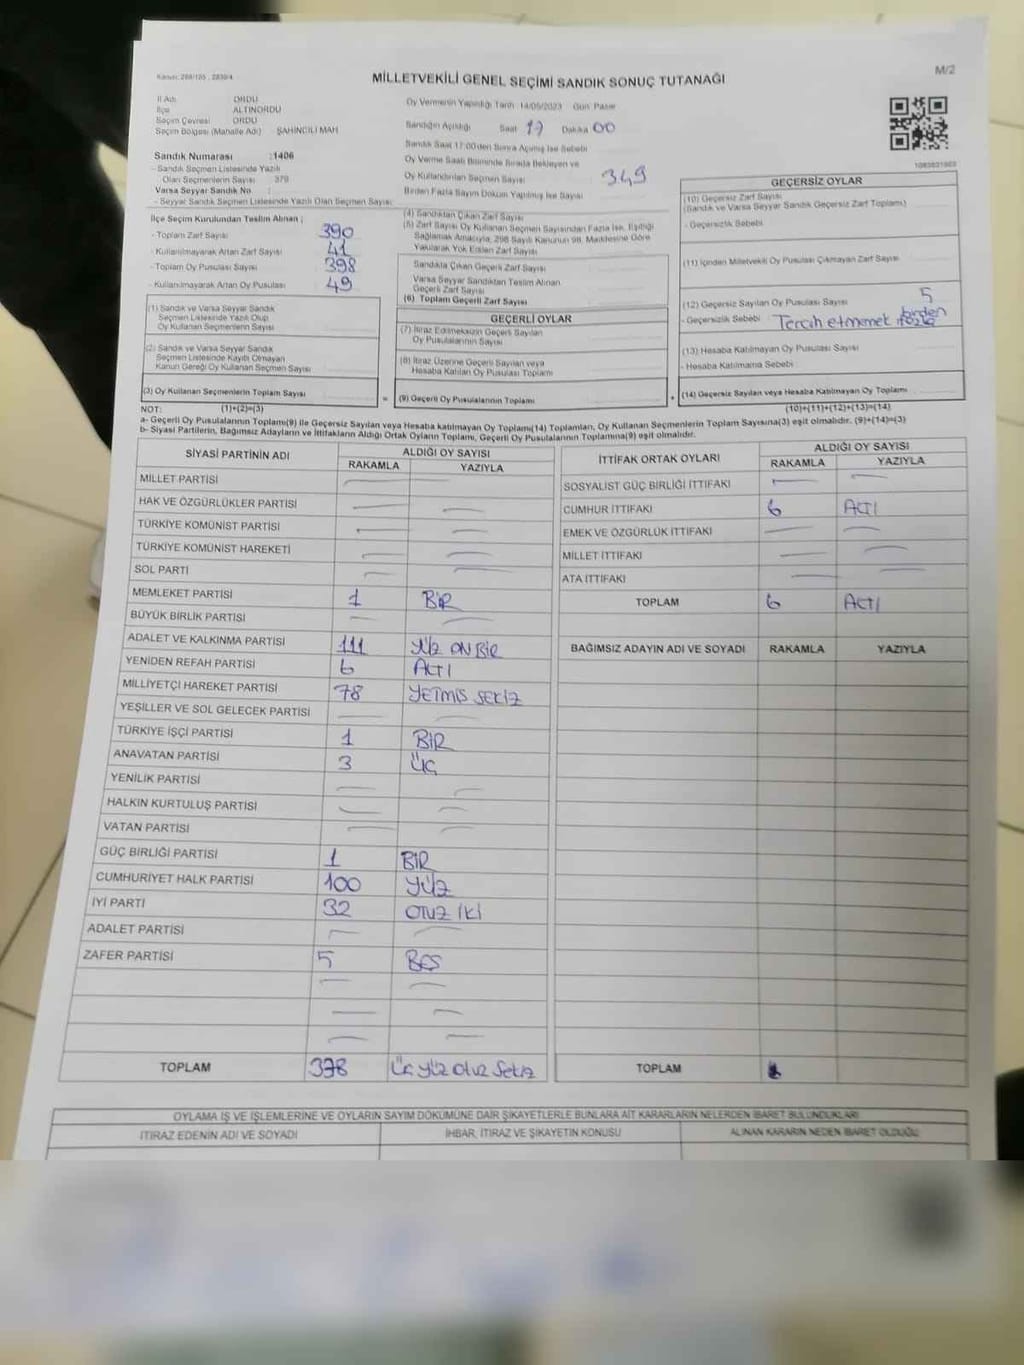 M/2
MİLLETVEKİLİ GENEL SEÇİMİ SANDIK SONUÇ TUTANAĞI
İl Adı ORDU
İlçe ALTINORDU
Seçim Çevresi ORDU
Seçim Bölgesi (Mahalle Adı) ŞAHİNCİLİ MAH
Sandık Numarası :1406
- Sandık Seçmen Listesinde Yazılı
Olan Seçmenlerin Sayısı 379
Varsa Seyyar Sandık No :
- Seyyar Sandık Seçmen Listesinde Yazılı Olan Seçmen Sayısı
Oy Vermenin Yapıldığı Tarih 14/05/2023 Gün Pazar
Sandığın Açıldığı Saat 17 Dakika 00
Sandık Saat 17:00'den Sonra Açılmış İse Sebebi
Oy Verme Saati Bitiminde Sırada Bekleyen ve
Oy Kullandırılan Seçmen Sayısı 349
Birden Fazla Sayım Döküm Yapılmış İse Sayısı
İlçe Seçim Kurulundan Teslim Alınan ;
- Toplam Zarf Sayısı 390
- Kullanılmayarak Artan Zarf Sayısı 41
- Toplam Oy Pusulası Sayısı 398
- Kullanılmayarak Artan Oy Pusulası 49
(1) Sandık ve Varsa Seyyar Sandık
Seçmen Listesinde Yazılı Olup
Oy Kullanan Seçmenlerin Sayısı
(2) Sandık ve Varsa Seyyar Sandık
Seçmen Listesinde Kayıtlı Olmayan
Kanun Gereği Oy Kullanan Seçmen Sayısı
(3) Oy Kullanan Seçmenlerin Toplam Sayısı
=
(4) Sandıktan Çıkan Zarf Sayısı
(5) Zarf Sayısı Oy Kullanan Seçmen Sayısından Fazla İse, Eşitliği
Sağlamak Amacıyla, 298 Sayılı Kanunun 98. Maddesine Göre
Yakılarak Yok Edilen Zarf Sayısı
Sandıkta Çıkan Geçerli Zarf Sayısı
Varsa Seyyar Sandıktan Teslim Alınan
Geçerli Zarf Sayısı
(6) Toplam Geçerli Zarf Sayısı
GEÇERLİ OYLAR
(7) İtiraz Edilmeksizin Geçerli Sayılan
Oy Pusulalarının Sayısı
(8) İtiraz Üzerine Geçerli Sayılan veya
Hesaba Katılan Oy Pusulası Toplamı
(9) Geçerli Oy Pusulalarının Toplamı
+
GEÇERSİZ OYLAR
(10) Geçersiz Zarf Sayısı
(Sandık ve Varsa Seyyar Sandık Geçersiz Zarf Toplamı)
- Geçersizlik Sebebi
(11) İçinden Milletvekili Oy Pusulası Çıkmayan Zarf Sayısı
(12) Geçersiz Sayılan Oy Pusulası Sayısı 5
- Geçersizlik Sebebi Tercih etmemek birden fazla
(13) Hesaba Katılmayan Oy Pusulası Sayısı
- Hesaba Katılmama Sebebi
(14) Geçersiz Sayılan veya Hesaba Katılmayan Oy Toplamı
NOT: (1)+(2)=(3) (10)+(11)+(12)+(13)=(14)
a- Geçerli Oy Pusulalarının Toplamı(9) ile Geçersiz Sayılan veya Hesaba katılmayan Oy Toplamı(14) Toplamları, Oy Kullanan Seçmenlerin Toplam Sayısına(3) eşit olmalıdır. (9)+(14)=(3)
b- Siyasi Partilerin, Bağımsız Adayların ve İttifakların Aldığı Ortak Oyların Toplamı, Geçerli Oy Pusulalarının Toplamına(9) eşit olmalıdır.
SİYASİ PARTİNİN ADI ALDIĞI OY SAYISI
RAKAMLA YAZIYLA
MİLLET PARTİSİ
HAK VE ÖZGÜRLÜKLER PARTİSİ
TÜRKİYE KOMÜNİST PARTİSİ
TÜRKİYE KOMÜNİST HAREKETİ
SOL PARTİ
MEMLEKET PARTİSİ 1 BİR
BÜYÜK BİRLİK PARTİSİ
ADALET VE KALKINMA PARTİSİ 111 YÜZ ON BİR
YENİDEN REFAH PARTİSİ 6 ALTI
MİLLİYETÇİ HAREKET PARTİSİ 78 YETMİŞ SEKİZ
YEŞİLLER VE SOL GELECEK PARTİSİ
TÜRKİYE İŞÇİ PARTİSİ 1 BİR
ANAVATAN PARTİSİ 3 ÜÇ
YENİLİK PARTİSİ
HALKIN KURTULUŞ PARTİSİ
VATAN PARTİSİ
GÜÇ BİRLİĞİ PARTİSİ 1 BİR
CUMHURİYET HALK PARTİSİ 100 YÜZ
İYİ PARTİ 32 OTUZ İKİ
ADALET PARTİSİ
ZAFER PARTİSİ 5 BEŞ
TOPLAM 338 Üç yüz otuz sekiz
İTTİFAK ORTAK OYLARI ALDIĞI OY SAYISI
RAKAMLA YAZIYLA
SOSYALİST GÜÇ BİRLİĞİ İTTİFAKI
CUMHUR İTTİFAKI 6 ALTI
EMEK VE ÖZGÜRLÜK İTTİFAKI
MİLLET İTTİFAKI
ATA İTTİFAKI
TOPLAM 6 ALTI
BAĞIMSIZ ADAYIN ADI VE SOYADI RAKAMLA YAZIYLA
TOPLAM
OYLAMA İŞ VE İŞLEMLERİNE VE OYLARIN SAYIM DÖKÜMÜNE DAİR ŞİKAYETLERLE BUNLARA AİT KARARLARIN NELERDEN İBARET BULUNDUKLARI
İTİRAZ EDENİN ADI VE SOYADI İHBAR, İTİRAZ VE ŞİKAYETİN KONUSU ALINAN KARARIN NEDEN İBARET OLDUĞU